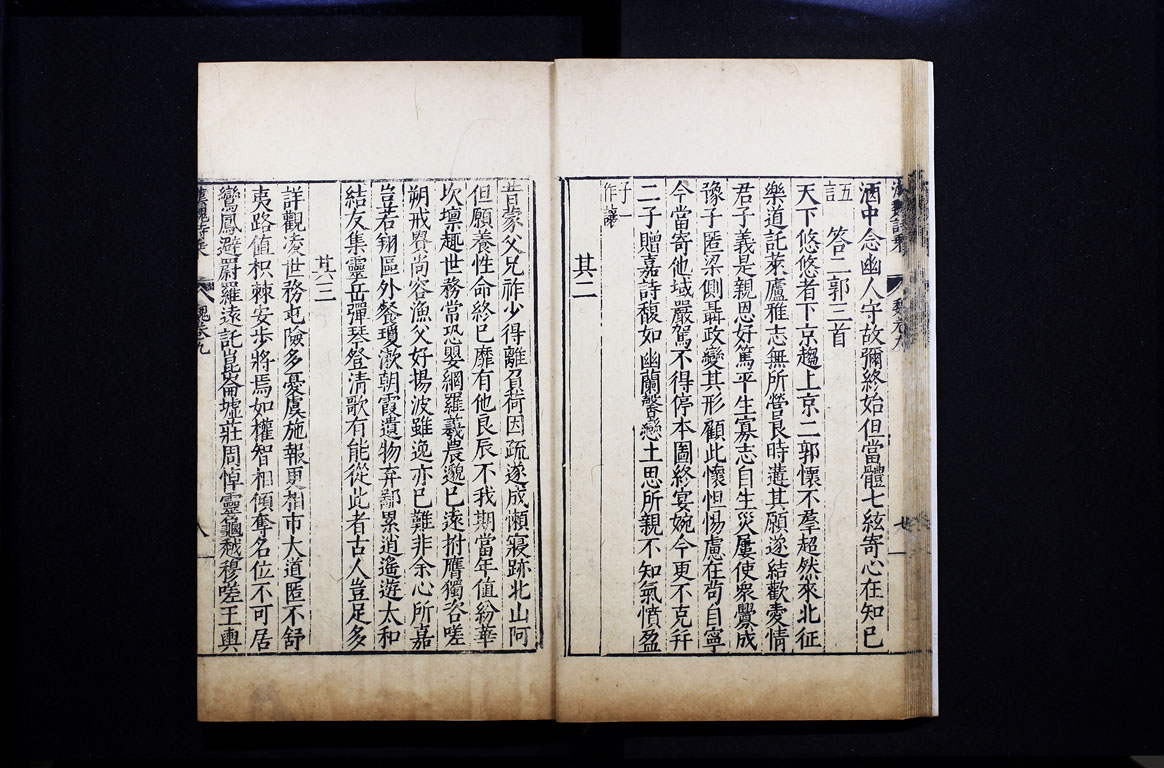 酒中念幽人守故彌終始但當體七絃寄心在知已
五言
答二郭三首
天下悠悠者下京趨上京二郭懷不羣超然來北征
樂道託萊廬雅志無所營良時遘其願遂結歡愛情
君子義是親恩好篤平生寡志自生災屢使衆釁成
豫子匿梁側聶政變其形顧此懷怛惕慮在苟自寧
今當寄他域嚴駕不得停本圖終宴婉今更不克幷
二子贈嘉詩馥如幽蘭馨戀土思所親不知氣憤盈
子一
作譁
其二
昔蒙父兄祚少得離負荷因疏遂成懶寢跡北山阿
但願養性命終已靡有他良辰不我期當年值紛華
坎壈趣世務常恐嬰網羅羲農邈已遠拊膺獨咨嗟
朔戒貴尚容漁父好揚波雖逸亦已難非余心所嘉
豈若翔區外餐瓊漱朝霞遺物弃鄙累逍遙遊太和
結友集靈岳彈琴登清歌有能從此者古人豈足多
其三
詳觀凌世務屯險多憂虞施報更相市大道匿不舒
夷路值枳棘安步將焉如權智相傾奪名位不可居
鸞鳳避罻羅遠託崑崙墟莊周悼靈龜越穆嗟王輿
魏卷九
八